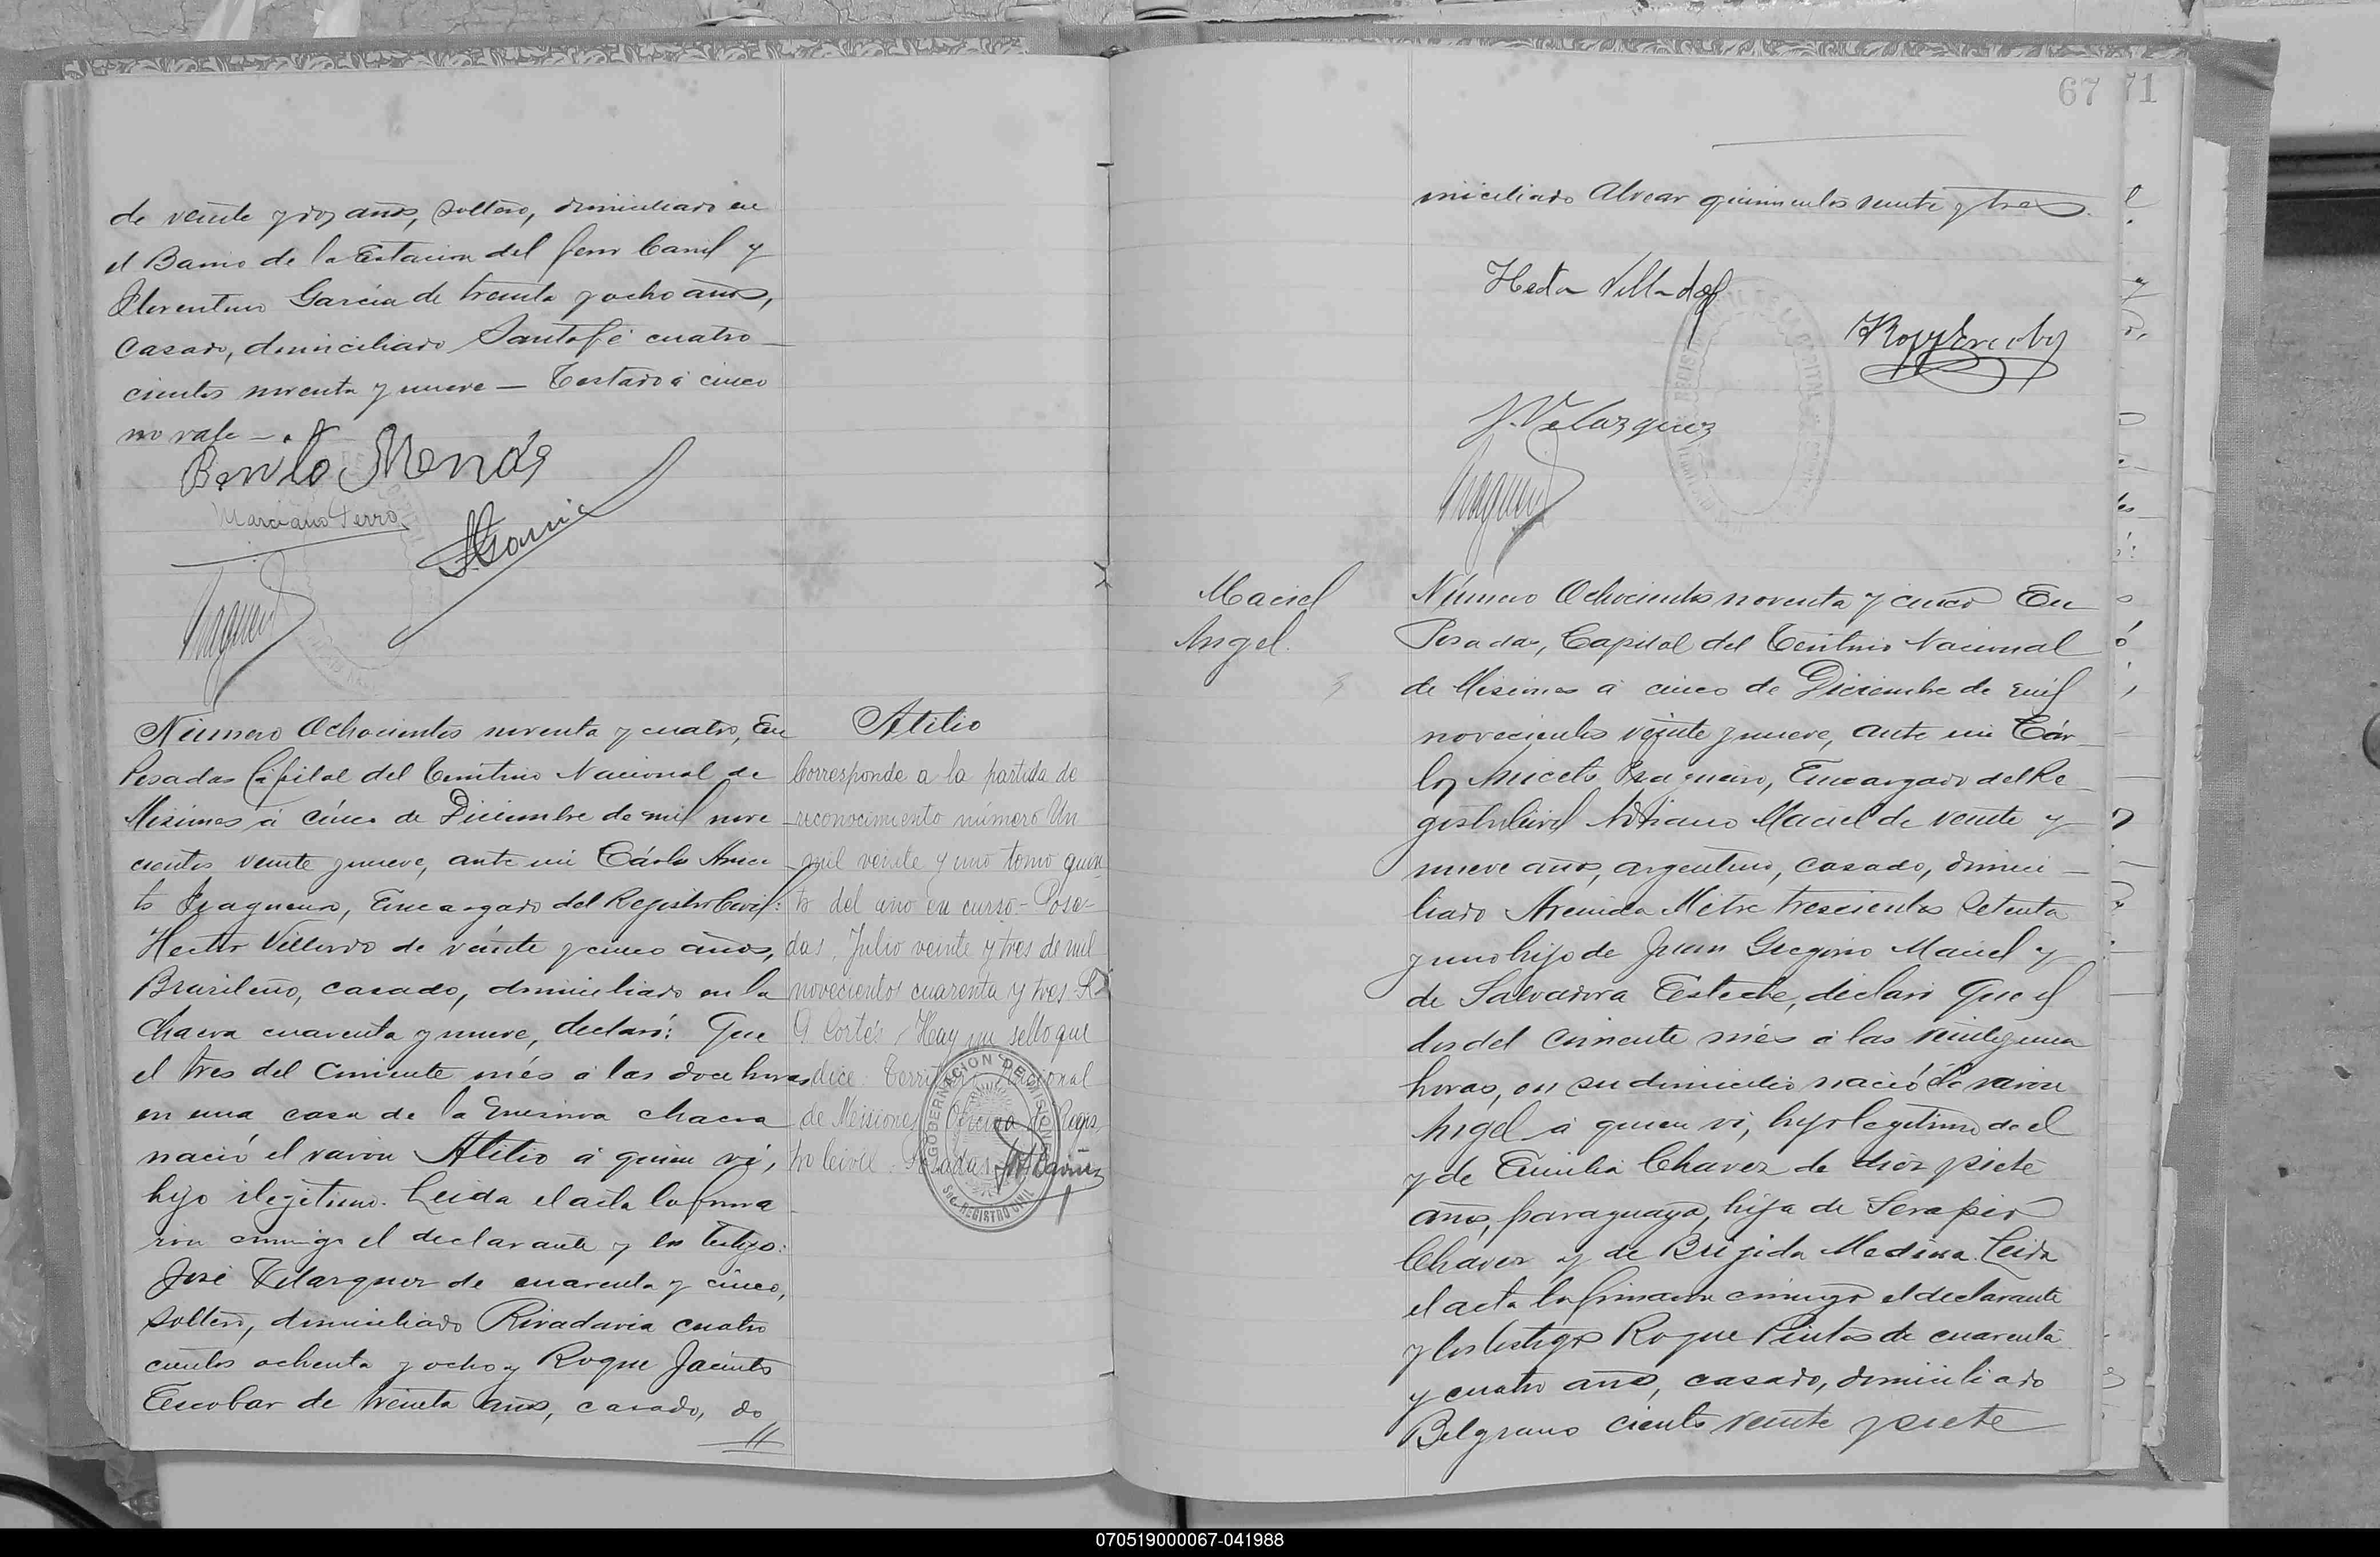 de veinte y dos años, soltero, domiciliado en
el Barrio de la Estacion del ferro Carril y
Florentino Garcia de treinta y ocho años,
casado, domiciliado Santa fé cuatro
cientos noventa y nueve — Testado: a cinco
no vale —
Benito
Marciano Ferro
Garcia
Número Ochocientos noventa y cuatro, En
Posadas Capital del Territorio Nacional de
Misiones á cinco de Diciembre de mil nove
cientos veinte y nueve, ante mi Cárlos Anice
to Fragueiro, Encargado del Registro Civil:
Hector Villordo de veinte y cinco años,
Brasileño, casado, domiciliado en la
Chacra cuarenta y nueve, declaró: Que
el tres del corriente més á las doce horas
en una casa de la misma chacra
nació el varon Atilio á quien ví,
hijo ilegitimo. Leida el acta la firma
ron conmigo el declarante y los testigos:
José Velazquez de cuarenta y cinco,
soltero, domiciliado Rivadavia cuatro
cientos ochenta y ocho y Roque Jacinto
Escobar de treinta años, casado, do
//
Atilio
Corresponde a la partida de
reconocimiento número Un
mil veinte y uno tomo quin
to del año en curso - Posa-
das, Julio veinte y tres de mil
novecientos cuarenta y tres
Cortés, Hay un sello que
dice: Territorio Nacional
de Misiones Oficina de Regis
tro Civil. Posadas
GOBERNACION DE MISIONES
SEC. REGISTRO CIVIL
67
71
miciliado Alvear quinientos veinte y tres.
Hector Villordo
J. Velazquez
Maciel
Angel.
Número Ochocientos noventa y cinco En
Posadas, Capital del Territorio Nacional
de Misiones á cinco de Diciembre de mil
novecientos veinte y nueve, ante mi Cár
los Aniceto Fragueiro, Encargado del Re
gistro Civil Adriano Maciel de veinte y
nueve años, argentino, casado, domici
liado Avenida Mitre trescientos setenta
y uno hijo de Juan Gregorio Maciel y
de Salvadora Esteche, declaró Que el
dos del corriente més á las veintiguna
horas, en su domicilio nació el varon
Angel á quien ví, hijo legitimo de el
y de Emilia Chavez de diez y siete
años, paraguaya, hija de Serapio
Chavez y de Brigida Medina. Leida
el acta la firmaron conmigo el declarante
y los testigos Roque Pintos de cuarenta
y cuatro años, casado, domiciliado
Belgrano ciento veinte y siete
070519000067-041988